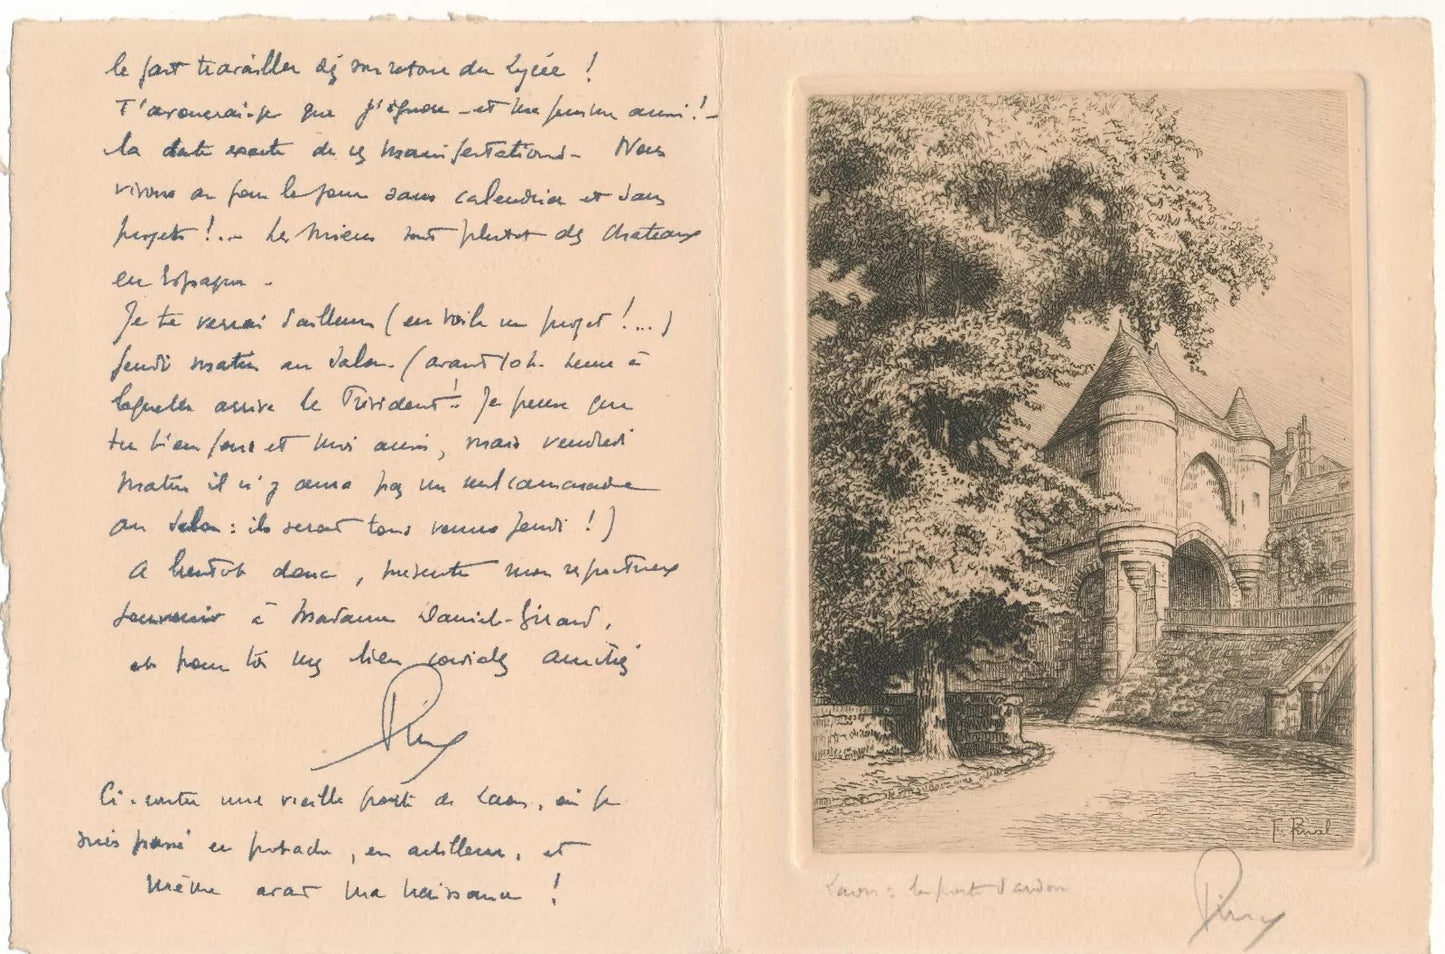 le fait travailler dès son retour du Lycée !
T'avouerai-je que j'ignore - et ma femme aussi ! -
la date exacte de ces manifestations - Nous
vivons au jour le jour sans calendrier et sans
projets !... Les miens sont plutôt des chateaux
en Espagne -
Je te verrai d'ailleurs (en voilà un projet !...)
Jeudi matin au Salon - (avant 10h - heure à
laquelle arrive le Président ! Je pense que
tu t'en fous et moi aussi, mais vendredi
matin il n'y aura pas un seul camarade
au Salon : ils seront tous venus Jeudi ! )
A bientôt donc, présente mon respectueux
souvenir à Madame Daniel-Girard,
et pour toi mes bien cordiales amitiés
Ci-contre une vieille porte de Laon, où je
suis passé en potache, en artilleur, et
même avant ma naissance !
Laon : la porte d'Ardon